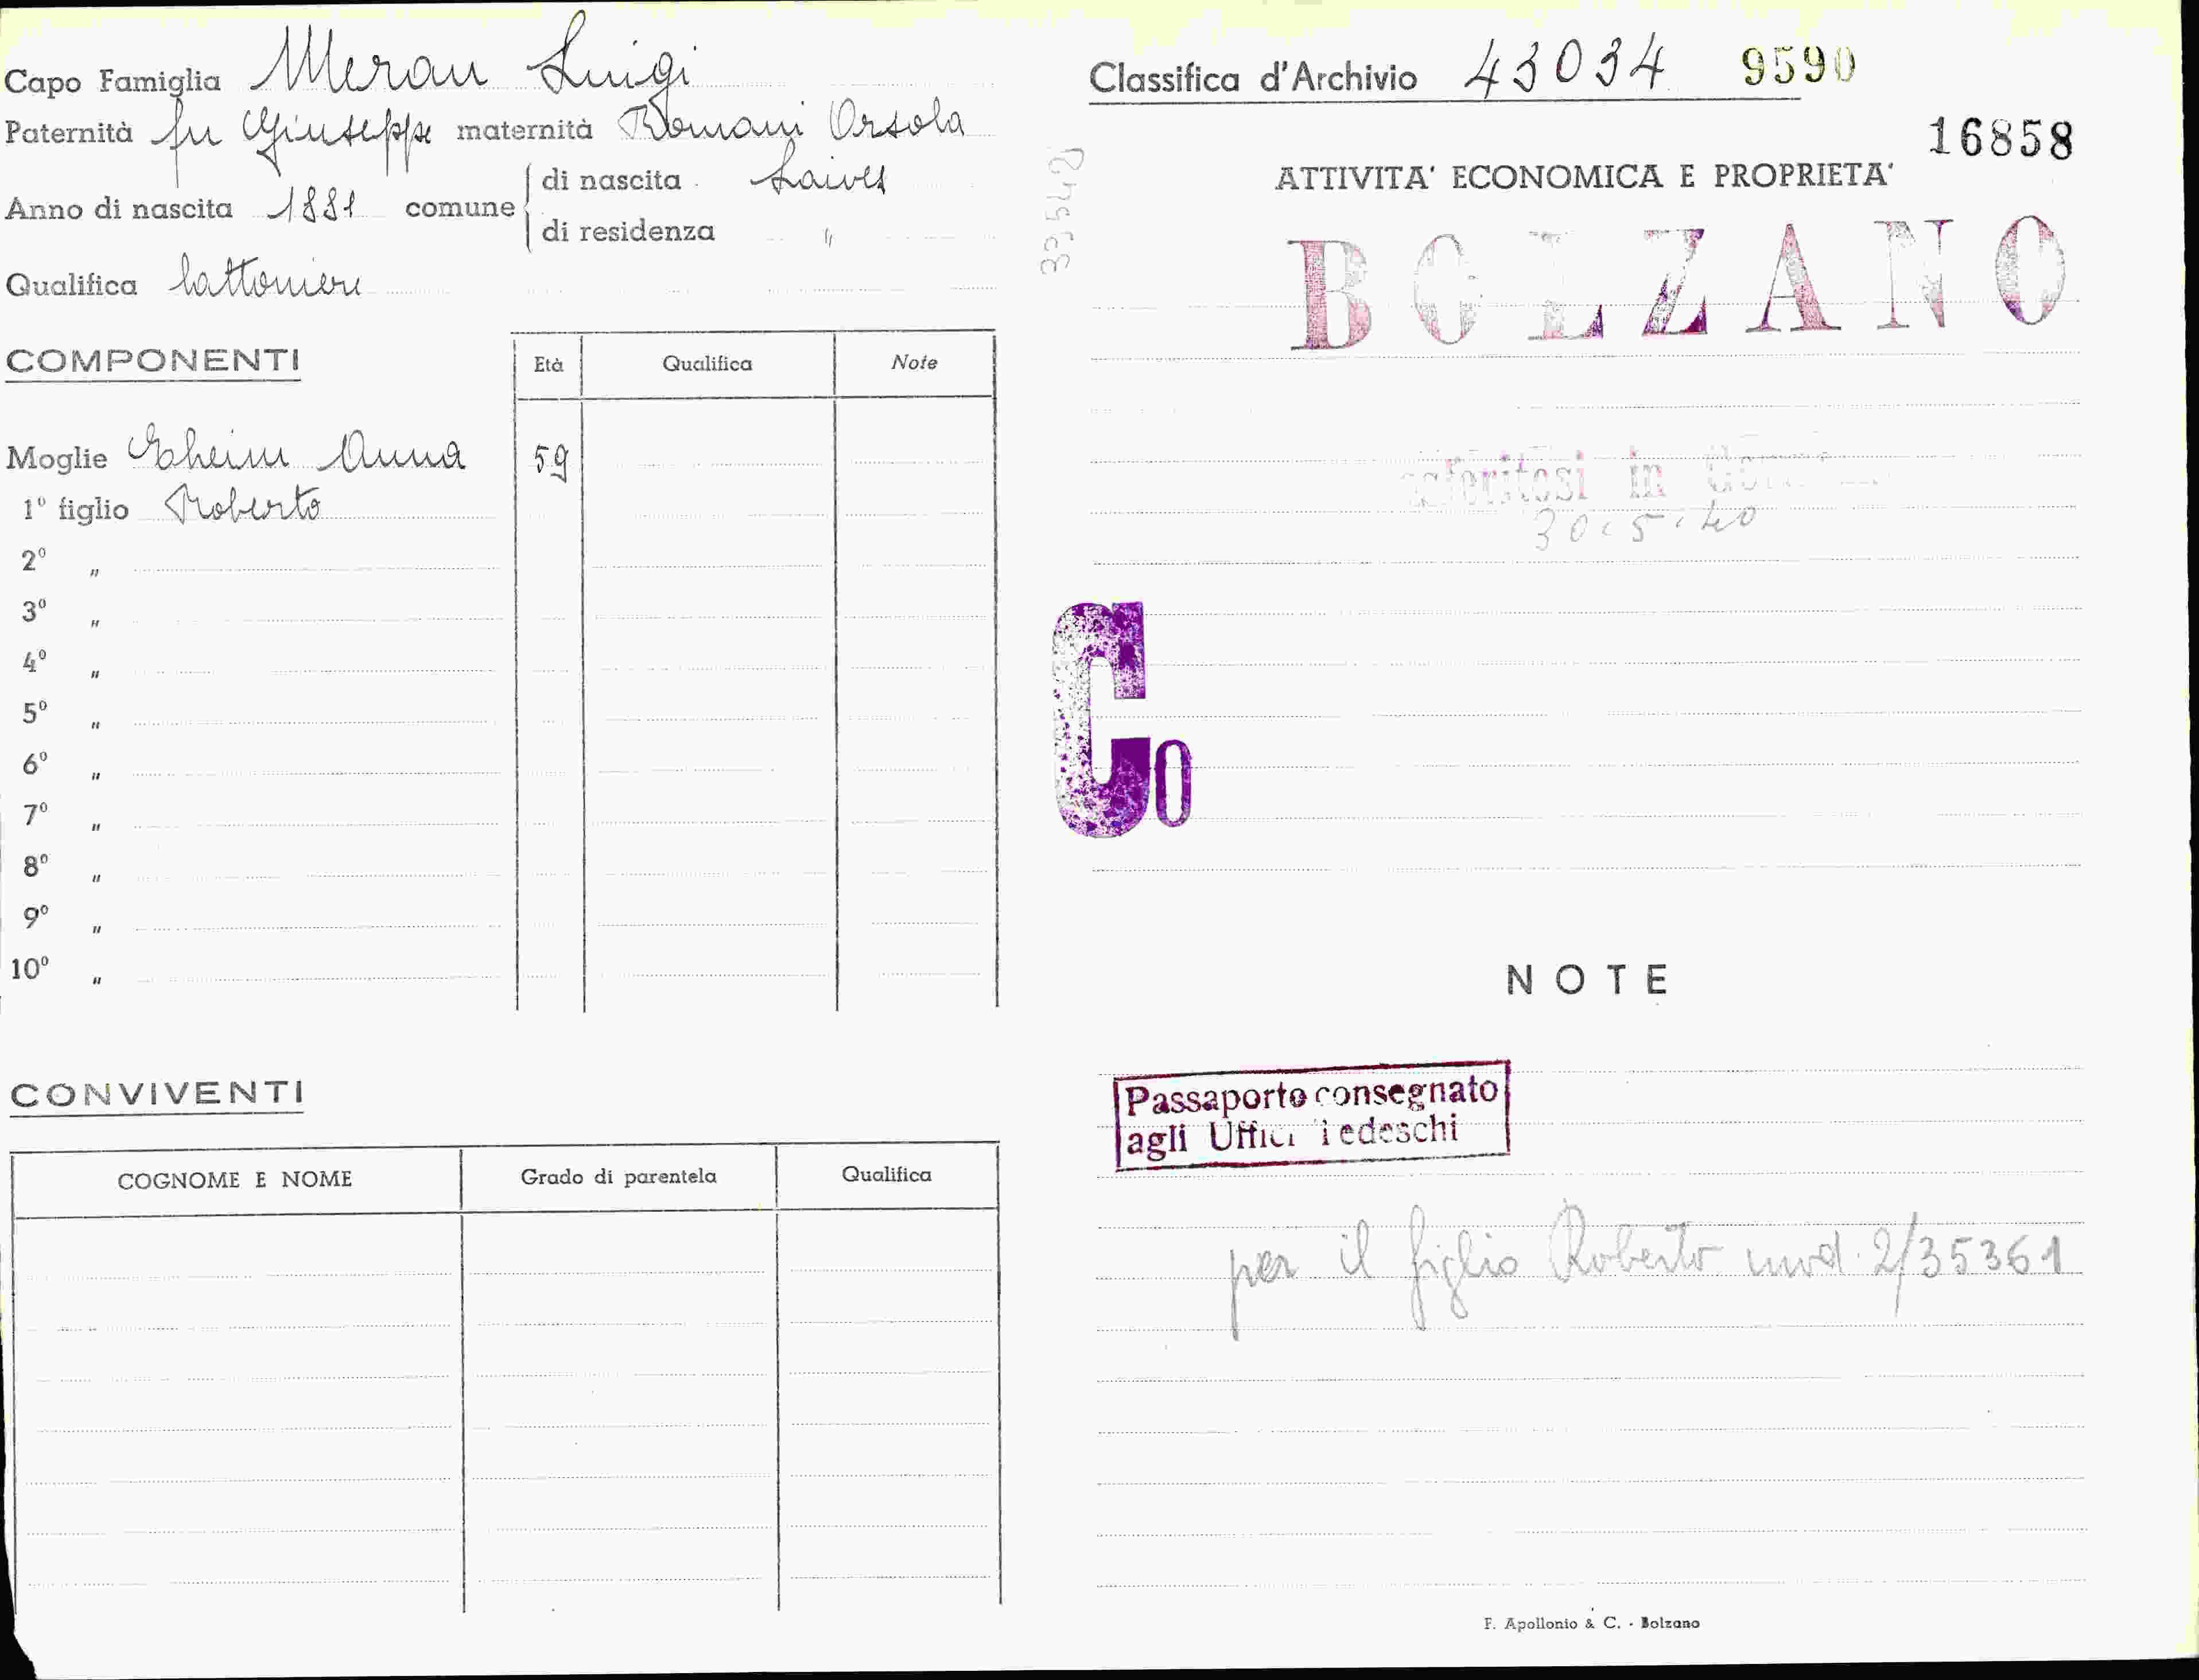 Capo Famiglia Meran Luigi
Paternità fu Giuseppe maternità Romani Orsola
Anno di nascita 1881 comune di nascita Laives
di residenza "
Qualifica lattoniere
COMPONENTI
Età Qualifica Note
Moglie Anna 59
1º figlio Roberto
2º "
3º "
4º "
5º "
6º "
7º "
8º "
9º "
10º "
CONVIVENTI
COGNOME E NOME Grado di parentela Qualifica
Classifica d'Archivio 43034 9590
16858
ATTIVITA' ECONOMICA E PROPRIETA'
BOLZANO
in
30.5.40
Co
NOTE
Passaporto consegnato
agli Uffici Tedeschi
per il figlio Roberto mod. 2/35361
F. Apollonio & C. - Bolzano